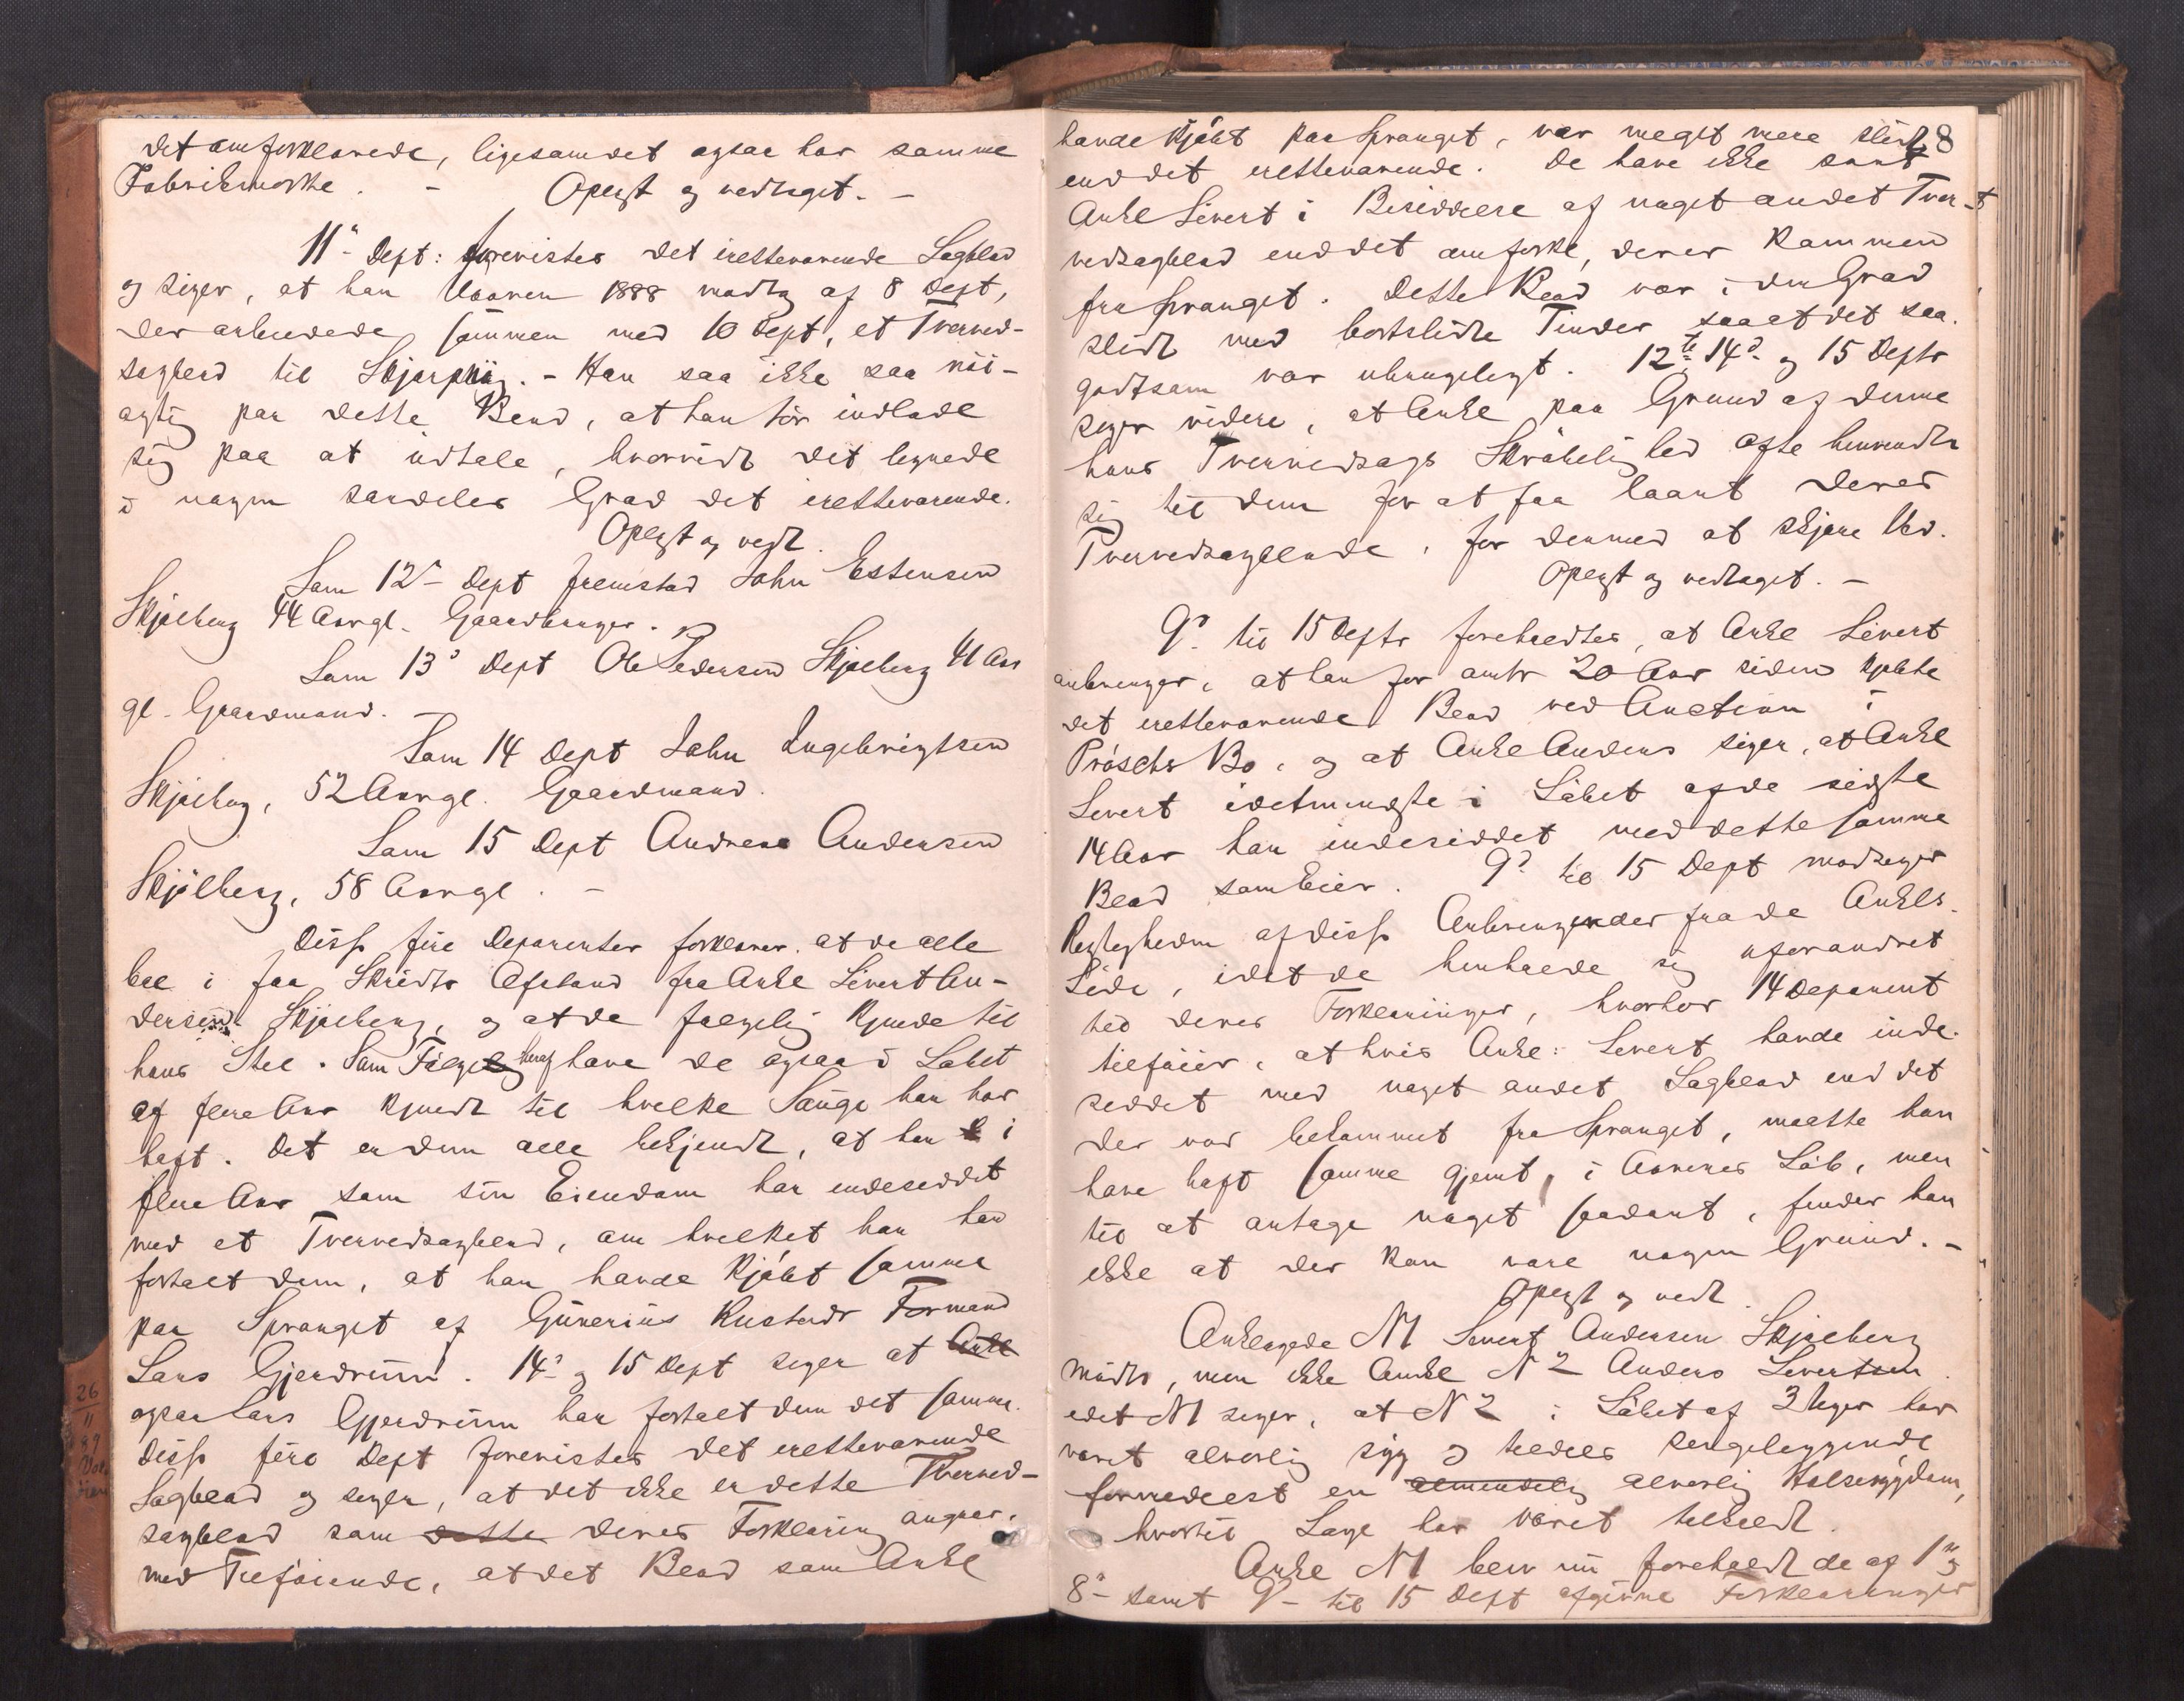 det omforklarede, ligesomdet ogsaa har samme
Fabrikmærke. - Oplæst og vedtaget. -
11te Dept: forevistes det iretteværende Sagblad
og siger, at han Vaaren 1888 modtog af 8 Dept,
der arbeidede sammen med 10 Dept, et Tverved-
sagblad til Skjærping. - Han saa ikke saa nöi-
agtig paa dette Blad, at han tör indlade
sig paa at udtale, hvorvidt det lignede
i nogen særdeles Grad det iretteværende.
Oplæst og vedt.
Som 12te Dept fremstod John Estensen
Skjølberg 44 Aar gl. Gaardbruger.
Som 13de Dept Ole Pedersen Skjølberg 41 Aar
gl. Gaardmand. -
Som 14 Dept John Ingebrigtsen
Skjølberg, 52 Aar gl. Gaardmand.
Som 15 Dept Andreas Andersen
Skjölberg, 58 Aar gl. -
Disse fire Deponenter forklarer, at de alle
boe i faa Skridts Afstand fra Ankl Sivert An-
dersen Skjølberg, og at de følgelig kjende til
hans Stel. Som Fölge heraf have de ogsaa i Løbet
af flere Aar kjendt til hvilke Sauge han har
haft. Det er dem alle bekjendt, at han i
flere Aar som sin Eiendom har indesiddet
med et Tvervedsagblad, om hvilket han har
fortalt dem, at han havde kjöbt samme
paa Spranget af Gunerius Rustads Formand
Lars Gjerdrum. 14de og 15 Dept siger at Ankl
ogsaa Lars Gjerdrum har fortalt dem det samme.
Disse fire Dept forevistes det iretteværende
Sagblad og siger, at det ikke er dette Tverved-
sagblad som dette deres Forklaring angaar,
med Tilföiende, at det Blad som Ankl
28
havde kjöbt paa Spranget, var meget mere slidt
end det iretteværende. De have ikke seet
Ankl Sivert i Besiddelse af noget andet Tver-
vedsagblad end det omforkl, der er kommen
fra Spranget. Dette Blad var i den Grad
slidt med bortslidte Tinder saa at det saa-
godtsom var ubrugeligt. 12te 14de og 15 Depts
siger videre, at Ankl paa Grund af denne
hans Tvervedsags Skröbelighed ofte henvendte
sig til dem for at faa laant deres
Tvervedsagblade, for dermed at skjære Ved.
Oplæst og vedtaget. -
9de til 15 Depts foreholdtes, at Ankl Sivert
anbringer, at han for omtr 20 Aar siden kjøbte
det iretteværende Blad ved Auction i
Pröschs Bo, og at Ankl Anders siger, at Ankl
Sivert idetmindste i Löbet af de sidste
14 Aar har indesiddet med dette samme
Blad som Eier. 9de til 15 Dept modsiger
Rigtigheden af disse Anbringender fra de Ankls
Side, idet de henholde sig uforandret
til deres Forklaringer, hvorhos 14 Deponent
tilföier, at hvis Ankl: Sivert havde inde-
siddet med noget andet Sagblad end det
der var bekommet fra Spranget, maatte han
have haft samme gjemt, i Aarenes Löb, men
til at antage noget saadant, finder han
ikke at der kan være nogen Grund. -
Oplæst og vedt.
Anklagede N1 Sivert Andersen Skjølberg
mödte, men ikke Ankl N 2 Anders Sivertsen.
idet N1 siger, at N 2 i Löbet af 3 Uger har
været alvorlig syg og tildels sengeliggende
formedelst en almindelig alvorlig Halssygdom,
hvortil Læge har været tilkaldt.
Ankl N1 blev nu foreholdt de af 1ste og
8de samt 9de til 15 Dept afgivne Forklaringer
26
11
89